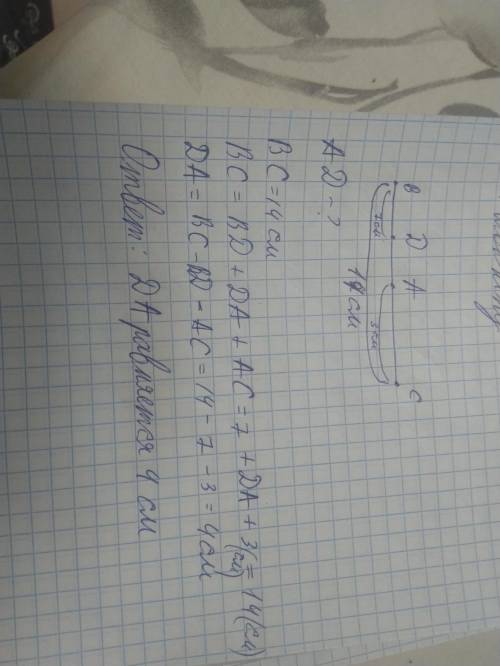 B D A C
7см 3см
14 см
AD - ?
BC = 14 см
BC = BD + DA + AC = 7 + DA + 3 (см) = 14 (см)
DA = BC - BD - AC = 14 - 7 - 3 = 4 см
Ответ: DA равняется 4 см